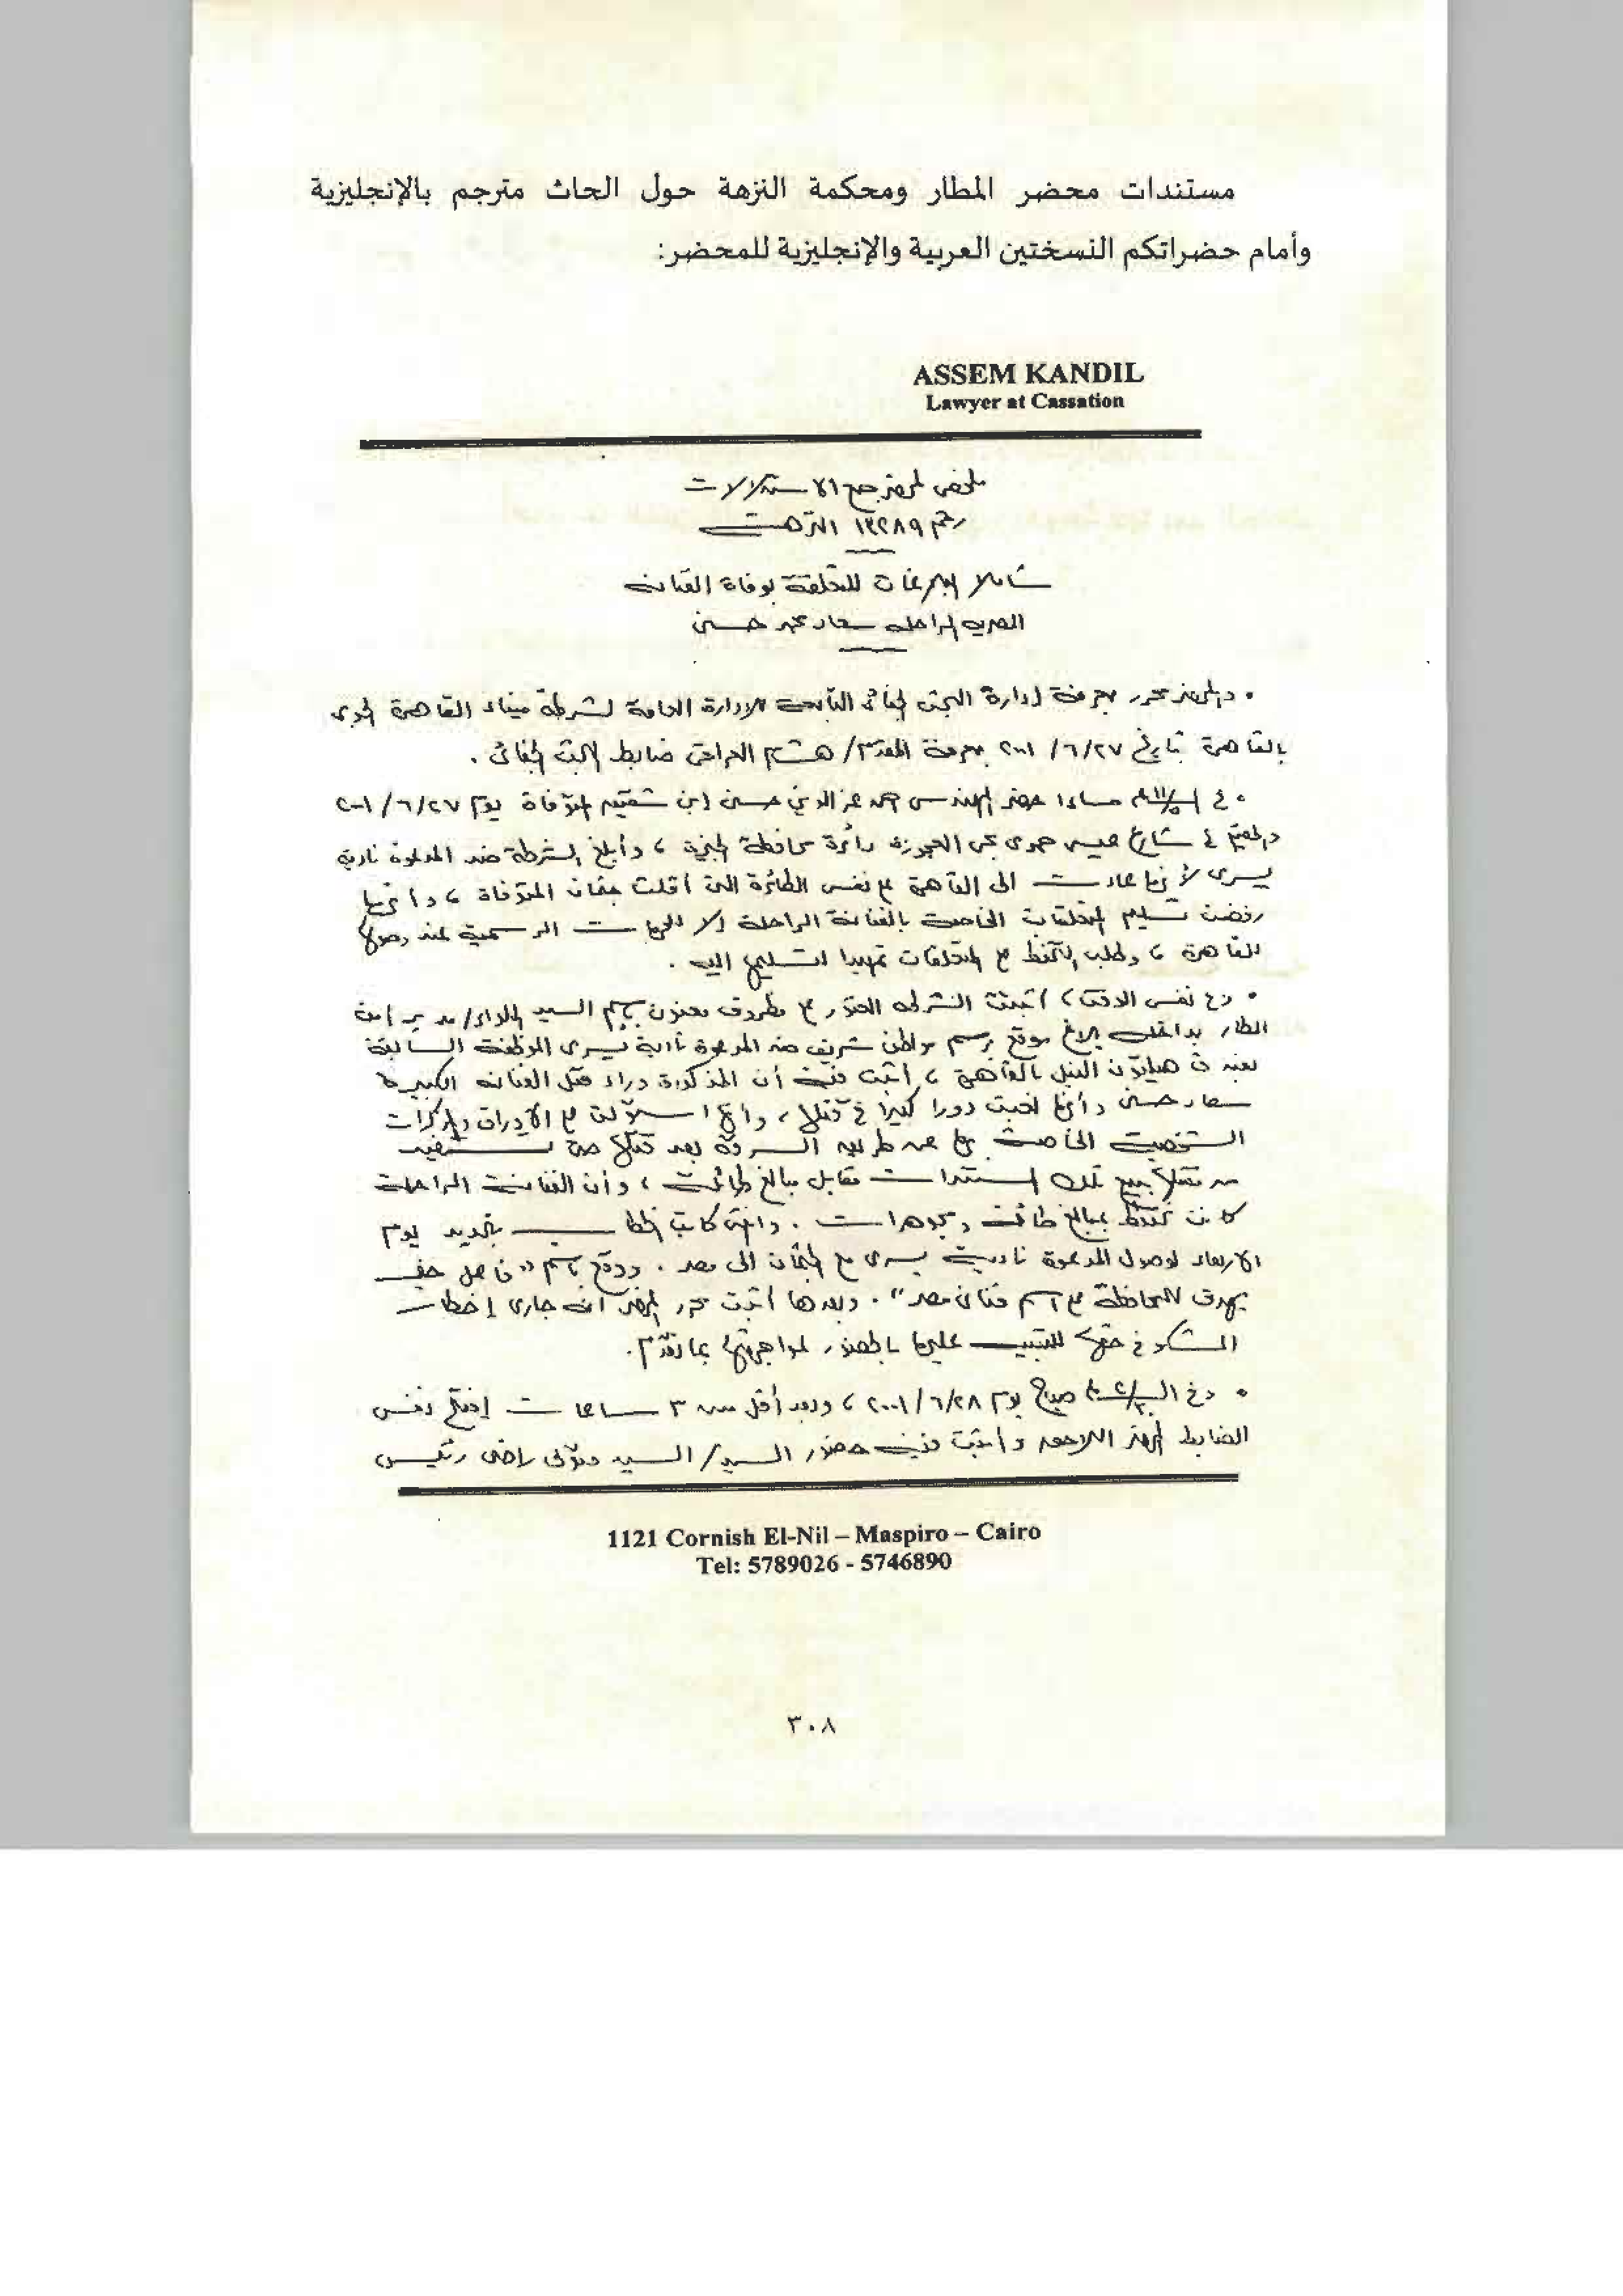 مستندات محضر المطار ومحكمة النزهة حول الحاث مترجم بالإنجليزية
وأمام حضراتكم النسختين العربية والإنجليزية للمحضر:
ASSEM KANDIL
Lawyer at Cassation
ملخص لمحضر جمع الاستدلالات
رقم ١٢٢٨٩ النزهة
شاملا المتعلقة بوفاة الفنانه
المصريه الراحله سعاد محمد حسنى
• والمحضر محرر بمعرفة إدارة البحث الجنائى التابعة للإدارة العامة لشرطة ميناء القاهرة الجوى
بالقاهرة بتاريخ ٢٠٠١/٦/٢٧ بمعرفة المقدم/ هشام العراقى ضابط البحث الجنائى .
• مساءا حضر المهندس عز الدين حسنى ابن شقيق المتوفاة يوم ٢٠٠١/٦/٢٧
والمقيم ٤ شارع عيسى حمدى بحى العجوزه دائرة محافظة الجيزة ، وأبلغ الشرطة ضد المدعوة نادية
يسرى لأنها عادت الى القاهرة على نفس الطائرة التى أقلت جثمان المتوفاة ، وأنها
رفضت تسليم المتعلقات الخاصة بالفنانة الراحلة إلا للجهات الرسمية عند وصولها
للقاهرة ، وطلب التحفظ على المتعلقات تمهيدا لتسليمها اليه .
• وفى نفس الوقت ، أثبتت الشرطه العثور على مظروف معنون باسم السيد اللواء/ مدير أمن
المطار بداخله بلاغ موقع باسم مواطن شريف ضد المدعوة نادية يسرى الموظفة السابقة
هيلتون النيل بالقاهرة ، أثبت فيه أن المذكورة وراء مقتل الفنانه الكبيره
سعاد حسنى وأنها لعبت دورا كبيرا فى قتلها ، وأنها استولت على الأوراق والمذكرات
الشخصية الخاصة بها عن طريق السرقة بعد قتلها حتى تستفيد
من نقلها بيع تلك المستندات مقابل مبالغ طائلة ، وأن الفنانة الراحلة
كانت تحتفظ بمبالغ طائلة ومجوهرات . وانه كاتب الخطاب بالتحديد يوم
الاربعاء لوصول المدعوة نادية يسرى مع الجثمان الى مصر . ووقع باسم "فاعل خير
يهدف للمحافظة على اسم فنان مصر" . وبعدها أثبت محرر المحضر أنه جارى إخطار
المشكو فى حقها للتنبيه عليها بالحضور لمواجهتها بما تقدم .
• وفى صباح يوم ٢٠٠١/٦/٢٨ ، وبعد أقل من ٣ ساعات إفتتح نفس
الضابط المحضر اللاحق وأثبت فيه حضور السيد/ السيد متولى راضى رئيس
1121 Cornish El-Nil – Maspiro – Cairo
Tel: 5789026 - 5746890
٣٠٨